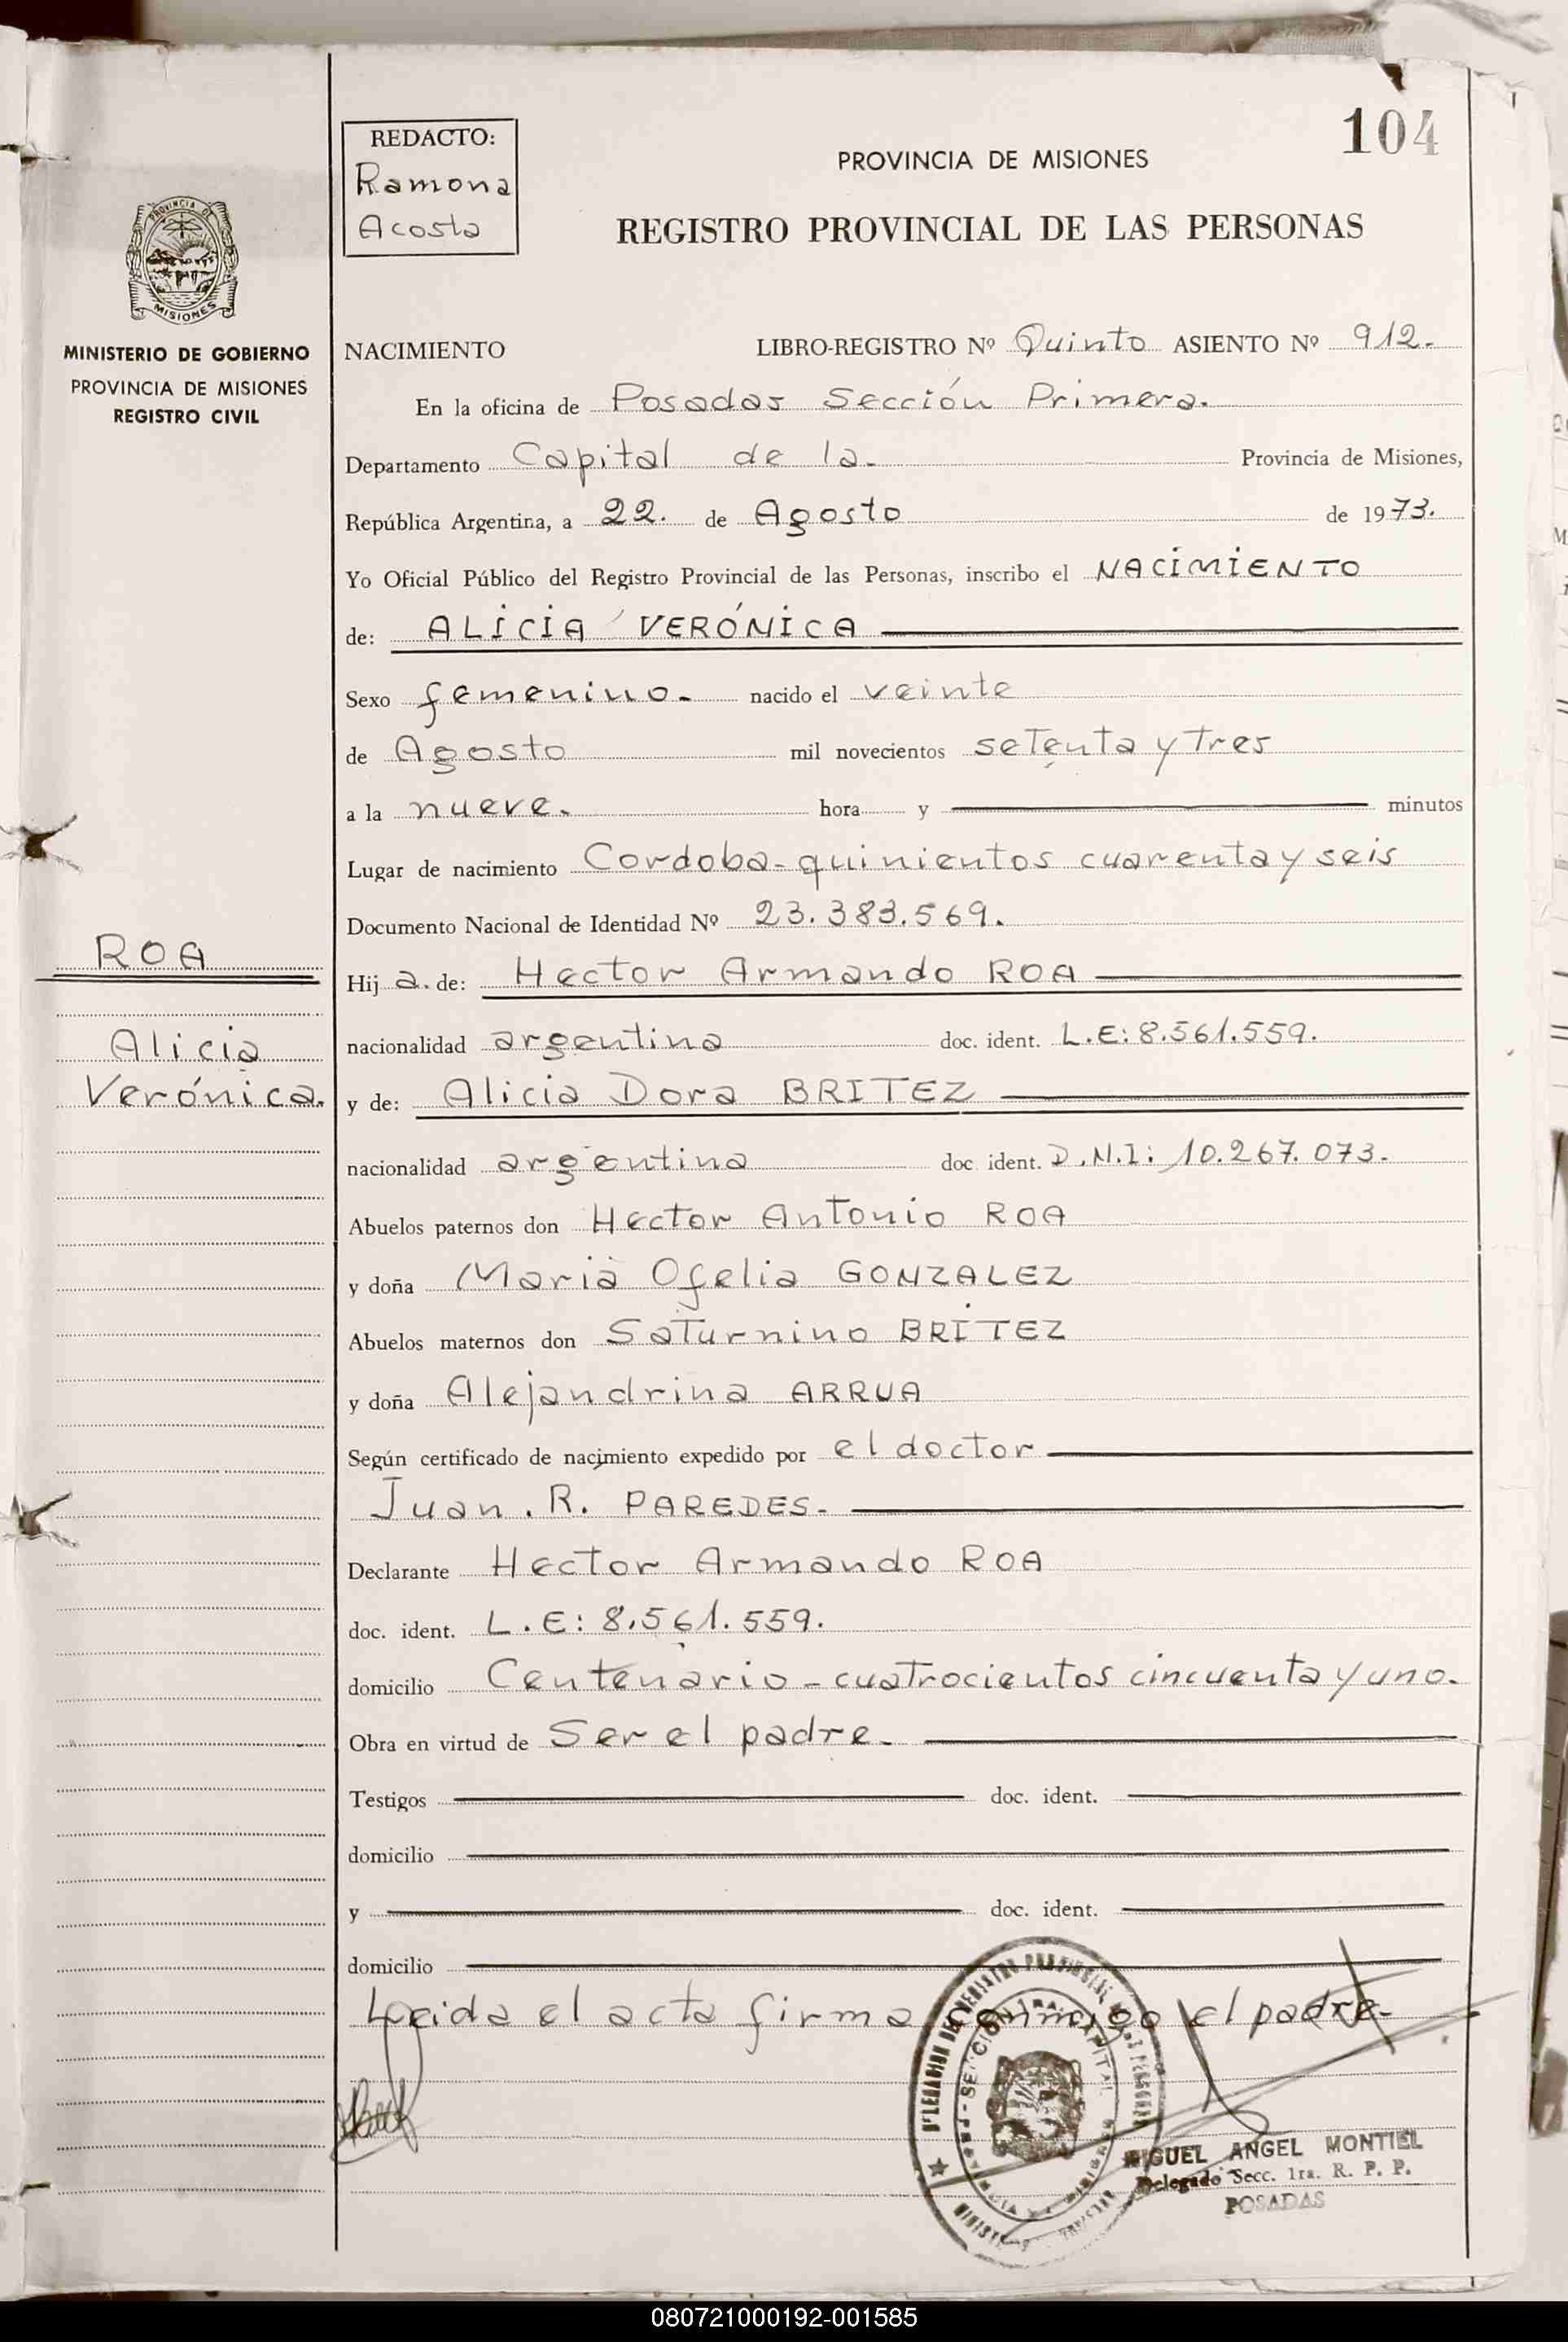 104
REDACTO:
Ramona
Acosta
PROVINCIA DE MISIONES
REGISTRO PROVINCIAL DE LAS PERSONAS
PROVINCIA DE
MISIONES
MINISTERIO DE GOBIERNO
PROVINCIA DE MISIONES
REGISTRO CIVIL
NACIMIENTO LIBRO-REGISTRO Nº Quinto ASIENTO Nº 912.
En la oficina de Posadas Sección Primera.
Departamento Capital de la. Provincia de Misiones,
República Argentina, a 22. de Agosto de 1973.
Yo Oficial Público del Registro Provincial de las Personas, inscribo el NACIMIENTO
de: ALICIA VERÓNICA
Sexo femenino. nacido el veinte
de Agosto mil novecientos setenta y tres
a la nueve. hora y minutos
Lugar de nacimiento Cordoba-quinientos cuarenta y seis
Documento Nacional de Identidad Nº 23.383.569.
ROA
Hij a. de: Hector Armando ROA
nacionalidad argentina doc. ident. L.E: 8.561.559.
Alicia
Verónica.
y de: Alicia Dora BRITEZ
nacionalidad argentina doc. ident. D.N.I: 10.267.073.
Abuelos paternos don Hector Antonio ROA
y doña Maria Ofelia GONZALEZ
Abuelos maternos don Saturnino BRITEZ
y doña Alejandrina ARRUA
Según certificado de nacimiento expedido por el doctor
Juan. R. PAREDES.
Declarante Hector Armando ROA
doc. ident. L.E: 8.561.559.
domicilio Centenario - cuatrocientos cincuenta y uno.
Obra en virtud de Ser el padre.
Testigos doc. ident.
domicilio
y doc. ident.
domicilio
Leida el acta firma conmigo el padre-
MIGUEL ANGEL MONTIEL
Delegado Secc. 1ra. R. P. P.
POSADAS
080721000192-001585